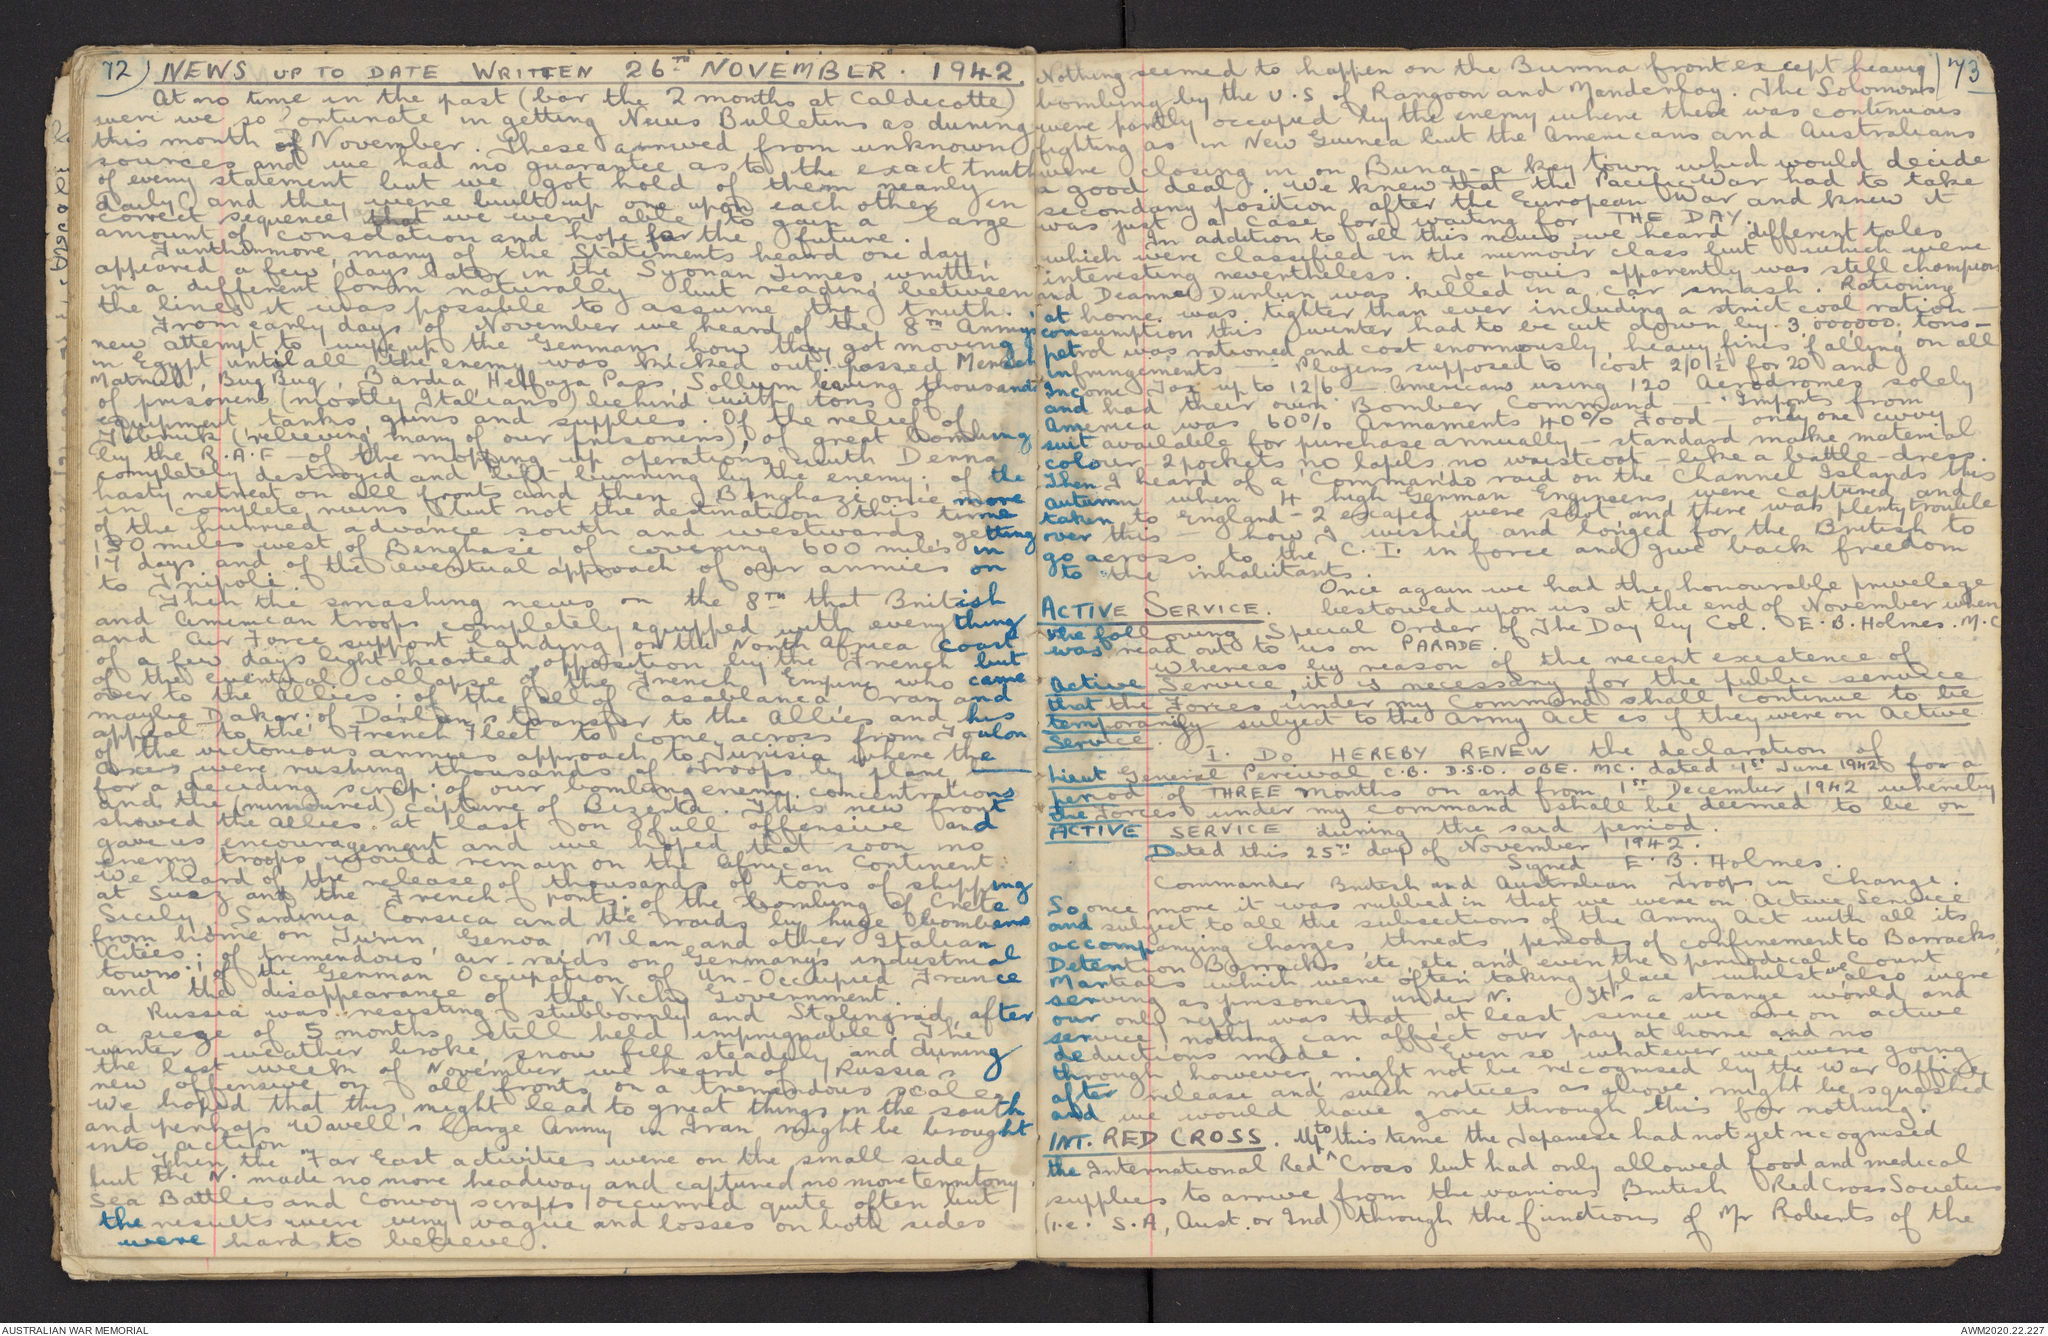 72) NEWS UP TO DATE WRITTEN 26TH NOVEMBER. 1942.
At no time in the past (bar the 2 months at Caldecotte)
were we so fortunate in getting News Bulletins as during
this month of November. These arrived from unknown
sources and we had no guarantee as to the exact truth
of every statement but we got hold of them nearly
daily and they were built up one upon each other in
correct sequence that we were able to gain a large
amount of consolation and hope for the future.
Furthermore, many of the Statements heard one day,
appeared a few days later in the Syonan Times, written
in a different form naturally but reading between
the lines it was possible to assume the truth.
From early days of November we heard of the 8TH Army's
new attempt to wipe up the Germans how they got moving
in Egypt until all the enemy was kicked out: passed Mersah
Matruh, Bug Bug, Bardia, Helfaya Pass, Sollum leaving thousands
of prisoners (mostly Italians) behind with tons of
equipment, tanks, guns and supplies. Of the relief of
Tobruk (relieving many of our prisoners), of great bombing
by the R.A.F - of the mopping up operations with Derna
completely destroyed and left burning by the enemy; of the
hasty retreat on all fronts and then Benghazi once more
in complete ruins but not the destination this time
of the hurried advance south and westwards getting
150 miles west of Benghasi, of covering 600 miles in
17 days and of the eventual approach of our armies on
to Tripoli.
Then the smashing news on the 8TH that British
and American troops completely equipped with everything
and Air Force support landing on the North Africa coast
of a few days light hearted opposition by the French but
of the eventual collapse of the French Empire who came
over to the Allies; of the fall of Casablanca Oran and
maybe Dakar; of Darlan's transfer to the Allies and his
appeal to the French Fleet to come across from Toulon
of the victorious armies approach to Tunisia where the
Axes were rushing thousands of troops by plane
for a deciding scrap; of our bombing enemy concentrations
and the (rumoured) capture of Bizerta. This new front
showed the Allies at last on full offensive and
gave us encouragement and we hoped that soon no
enemy troops would remain on the African Continent
We heard of the release of thousands of tons of shipping
at Suez and the French ports; of the bombing of Crete
Sicily, Sardinia Corsica and the raids by huge bombers
from home on Turin, Genoa, Milan and other Italian
Cities; of tremendous air-raids on Germany's industrial
towns; of the German Occupation of Un-Occupied France
and the disappearance of the Vichy Government.
Russia was resisting stubbornly and Stalingrad, after
a siege of 5 months still held impregnable. The
winter weather broke, snow fell steadily and during
the last week of November we heard of Russia's
new offensive on all fronts on a tremendous scale.
We hoped that this might lead to great things in the south
and perhaps Wavell's large Army in Iran might be brought
into action.
Then the Far East activities were on the small side
but the N. made no more headway and captured no more territory.
Sea Battles and Convoy scraps occurred quite often but
the results were very vague and losses on both sides
were hard to believe.
73
Nothing seemed to happen on the Burma front except heavy
bombing by the U.S of Rangoon and Mandenlay. The Solomons
were partly occupied by the enemy where there was continuous
fighting as in New Guinea but the Americans and Australians
were closing in on Buna - a key town which would decide
a good deal. We knew that the Pacific War had to take
secondary position after the European War and knew it
was just a case for waiting for THE DAY.
In addition to all this news we heard different tales
which were classified in the rumour class but which were
interesting nevertheless. Joe Louis apparently was still champion
and Deanna Durbin was killed in a car smash. Rationing
at home was tighter than ever including a strict coal ration -
consumption this winter had to be cut down by 3,000,000 tons -
petrol was rationed and cost enormously, heavy fines falling on all
infringements - Players supposed to cost 2/0½ for 20 and
Income Tax up to 12/6 - Americans using 120 Aerodromes solely
and had their own Bomber Command - Imports from
America was 60% Armaments 40% Food - only one civvy
suit available for purchase annually - standard make material
colour - 2 pockets no lapels no waistcoat - like a battle-dress.
Then I heard of a Commando raid on the Channel Islands this
autumn when 4 high German Engineers were captured and
taken to England - 2 escaped were shot and there was plenty trouble
over this - how I wished and longed for the British to
go across to the C.I. in force and give back freedom
to the inhabitants.
Once again we had the honourable privelege
ACTIVE SERVICE. bestowed upon us at the end of November when
the following Special Order of The Day by Col. E.B. Holmes. M.C
was read out to us on PARADE.
Whereas by reason of the recent existence of
Active Service, it is necessary for the public service
that the Forces under my Command shall continue to be
temporarily subject to the Army Act as if they were on Active
Service.
I. DO HEREBY RENEW the declaration of
Lieut General Percival C.B. D.S.O. OBE. MC. dated 1st June 1942 for a
period of THREE months on and from 1ST December 1942 whereby
the Forces under my command shall be deemed to be on
ACTIVE SERVICE during the said period.
Dated this 25TH day of November 1942.
Signed E.B. Holmes.
Commander British and Australian Troops in Change.
So once more it was rubbed in that we were on Active Service
and subject to all the subsections of the Army Act with all its
accompanying charges threats, periods of confinement to Barracks,
Detention Barracks etc, etc and even the periodical Court
Martials which were often taking place whilst we also were
serving as prisoners under N. It's a strange world and
our only reply was that, at least since we are on active
service, nothing can affect our pay at home and no
deductions made. Even so, whatever we were going
through, however, might not be recognised by the War Office
after release and such notices as above might be squashed
and we would have gone through this for nothing.
INT. RED CROSS. Up to this time the Japanese had not yet recognised
the International Red Cross but had only allowed food and medical
supplies to arrive from the various British Red Cross Societies
(i.e. S.A, Aust. or Ind) through the functions of Mr Roberts of the
AUSTRALIAN WAR MEMORIAL
AWM2020.22.227